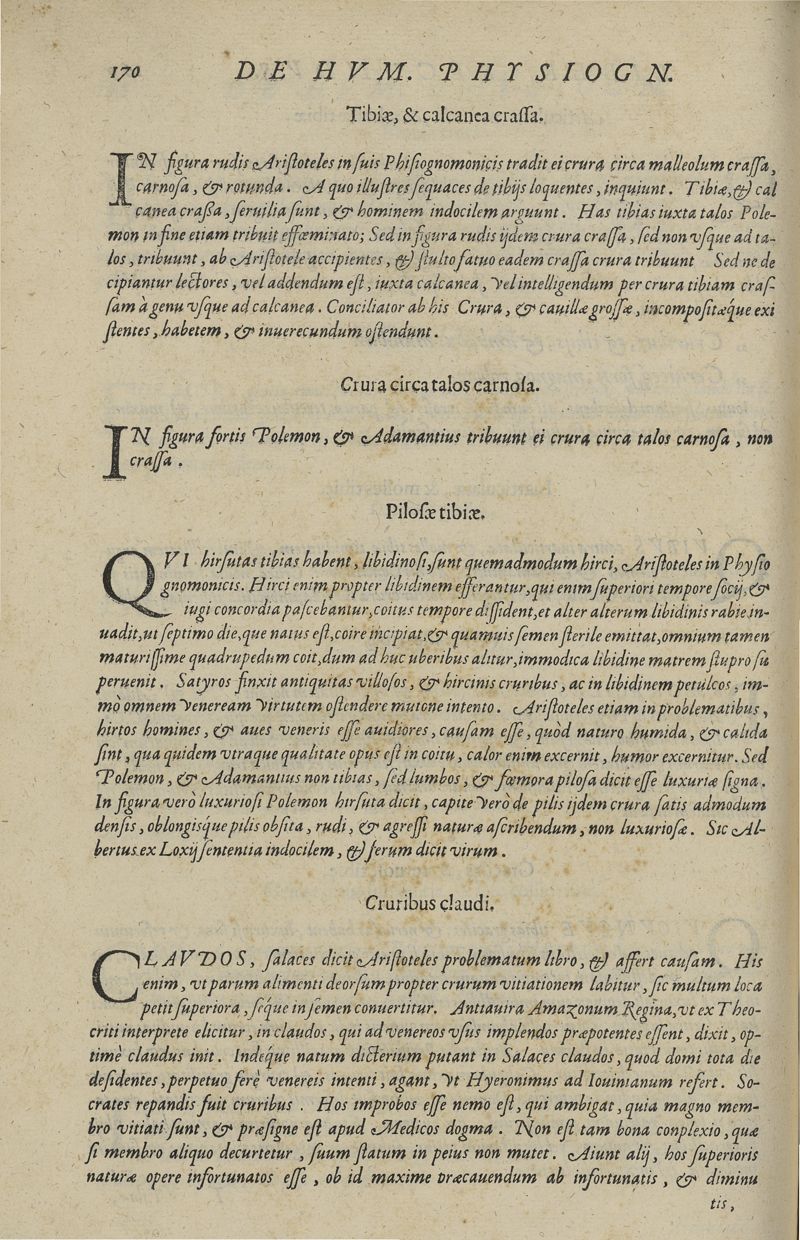 170 DE HVM. PHYSIOGN.
Tibiæ, & calcanea craſſa.
IN figura rudis Ariſtoteles in ſuis Phiſiognomonicis tradit ei crura circa malleolum craſſa,
carnoſa, & rotunda. A quo illuſtres ſequaces de tibijs loquentes, inquiunt. Tibiæ, & cal
canea craßa, ſeruilia ſunt, & hominem indocilem arguunt. Has tibias iuxta talos Pole-
mon in fine etiam tribuit effœminato; Sed in figura rudis ijdem crura craſſa, ſed non vſque ad ta-
los, tribuunt, ab Ariſtotele accipientes, & ſtulto fatuo eadem craſſa crura tribuunt Sed ne de
cipiantur lectores, vel addendum eſt, iuxta calcanea, vel intelligendum per crura tibiam craſ-
ſam à genu vſque ad calcanea. Conciliator ab his Crura, & cauillæ groſſæ, incompoſitæq́ue exi
ſtentes, habetem, & inuerecundum oſtendunt.
Crura circa talos carnoſa.
IN figura fortis Polemon, & Adamantius tribuunt ei crura circa talos carnoſa, non
craſſa.
Piloſæ tibiæ.
QVI hirſutas tibias habent, libidinoſi, ſunt quemadmodum hirci, Ariſtoteles in Phyſio
gnomonicis. Hirci enim propter libidinem efferantur, qui enim ſuperiori tempore ſocij, &
iugi concordia paſcebantur, coitus tempore diſſident, et alter alterum libidinis rabie in-
uadit, ut ſeptimo die, que natus eſt, coire incipiat, & quamuis ſemen ſterile emittat, omnium tamen
maturiſſime quadrupedum coit, dum ad huc uberibus alitur, immodica libidine matrem ſtupro ſu
peruenit. Satyros finxit antiquitas villoſos, & hircinis cruribus, ac in libidinem petulcos, im-
mò omnem Veneream Virtutem oſtendere mutone intento. Ariſtoteles etiam in problematibus,
hirtos homines, & aues veneris eſſe auidiores, cauſam eſſe, quòd naturo humida, & calida
ſint, qua quidem vtraque qualitate opus eſt in coitu, calor enim excernit, humor excernitur. Sed
Polemon, & Adamantius non tibias, ſed lumbos, & fœmora piloſa dicit eſſe luxuriæ ſigna.
In figura verò luxurioſi Polemon hirſuta dicit, capite Verò de pilis ijdem crura ſatis admodum
denſis, oblongisque pilis obſita, rudi, & agreſſi naturæ aſcribendum, non luxurioſæ. Sic Al-
bertus ex Loxij ſententia indocilem, & ferum dicit virum.
Cruribus claudi.
CLAVDOS, ſalaces dicit Ariſtoteles problematum libro, & affert cauſam. His
enim, vt parum alimenti deorſum propter crurum vitiationem labitur, ſic multum loca
petit ſuperiora, ſeq́ue in ſemen conuertitur. Antiauira Amazonum Regina, vt ex Theo-
criti interprete elicitur, in claudos, qui ad venereos vſus implendos præpotentes eſſent, dixit, op-
timè claudus init. Indeq́ue natum dicterium putant in Salaces claudos, quod domi tota die
deſidentes, perpetuo ferè venereis intenti, agant, Vt Hyeronimus ad Iouinianum refert. So-
crates repandis fuit cruribus. Hos improbos eſſe nemo eſt, qui ambigat, quia magno mem-
bro vitiati ſunt, & præſigne eſt apud Medicos dogma. Non eſt tam bona conplexio, quæ
ſi membro aliquo decurtetur, ſuum ſtatum in peius non mutet. Aiunt alij, hos ſuperioris
naturæ opere infortunatos eſſe, ob id maxime præcauendum ab infortunatis, & diminu
tis,